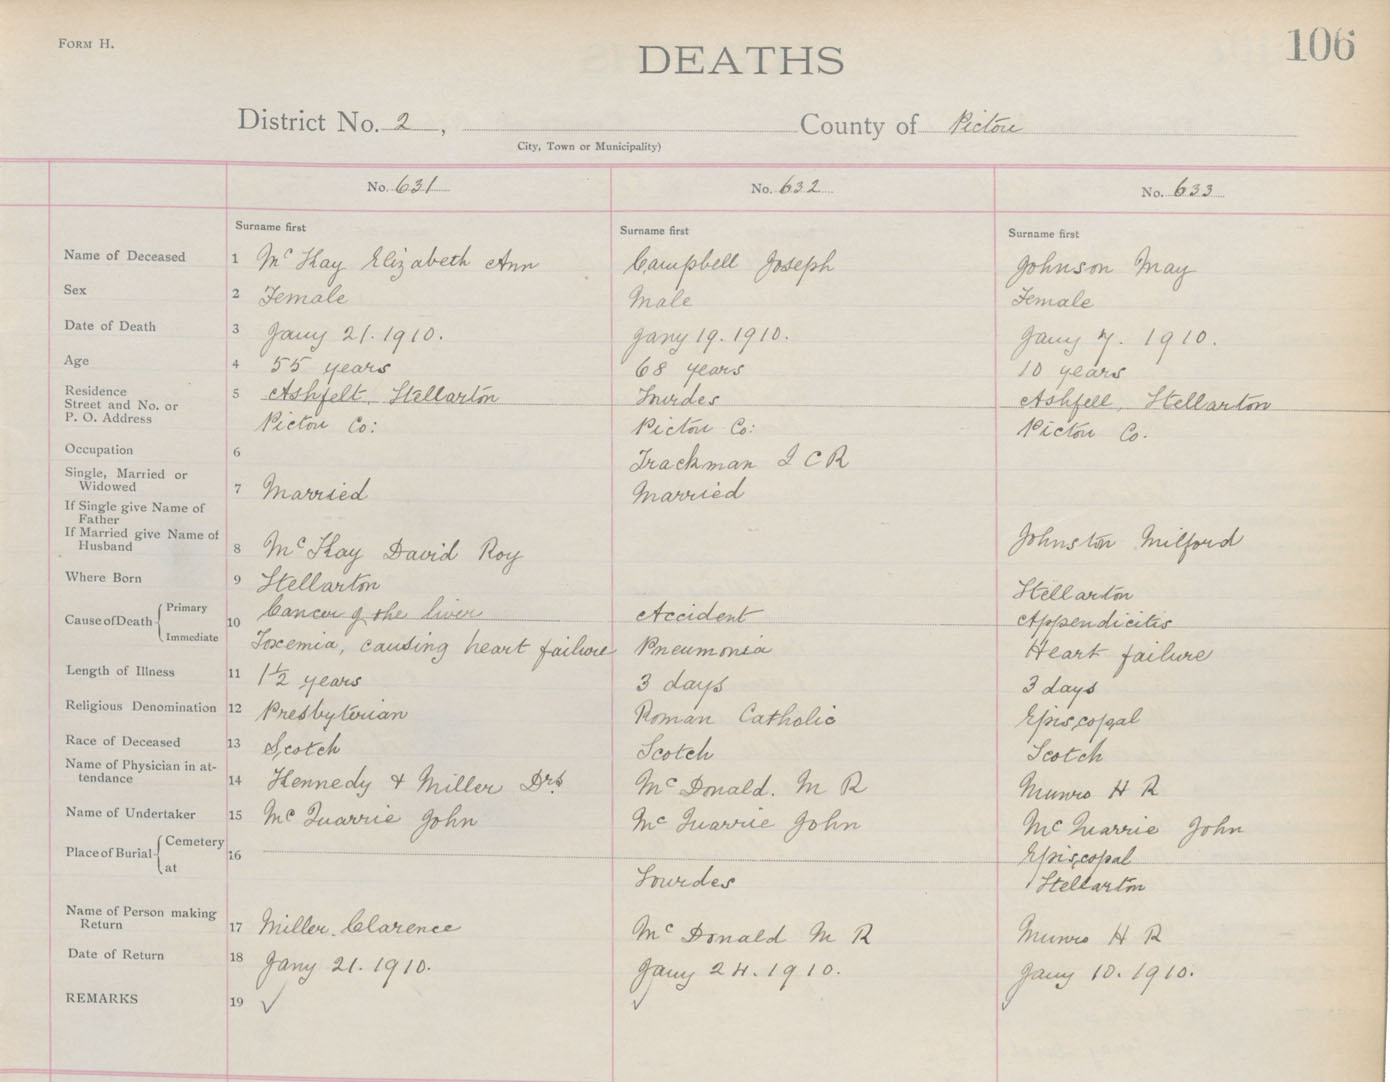 FORM H.
106
DEATHS
District No. 2, County of Pictou
City, Town or Municipality)
No. 631 No. 632 No. 633
Surname first Surname first Surname first
Name of Deceased 1 McKay Elizabeth Ann Campbell Joseph Johnson May
Sex 2 Female Male Female
Date of Death 3 Jany 21. 1910. Jany 19. 1910. Jany 7. 1910.
Age 4 55 years 68 years 10 years
Residence
Street and No. or
P. O. Address 5 Ashfelt, Stellarton Lourdes Ashfell, Stellarton
Pictou Co: Pictou Co: Pictou Co.
Occupation 6 Trackman I C R
Single, Married or
Widowed 7 Married Married
If Single give Name of
Father
If Married give Name of
Husband 8 McKay David Roy Johnston Milford
Where Born 9 Stellarton Stellarton
Cause of Death Primary 10 Cancer of the liver Accident Appendicitis
Immediate Toxemia, causing heart failure Pneumonia Heart failure
Length of Illness 11 1½ years 3 days 3 days
Religious Denomination 12 Presbyterian Roman Catholic Episcopal
Race of Deceased 13 Scotch Scotch Scotch
Name of Physician in at-
tendance 14 Kennedy & Miller Drs. McDonald. M R Munro H R
Name of Undertaker 15 McQuarrie John McQuarrie John McQuarrie John
Place of Burial Cemetery 16 Episcopal
at Lourdes Stellarton
Name of Person making
Return 17 Miller. Clarence McDonald M R Munro H R
Date of Return 18 Jany 21. 1910. Jany 24. 1910. Jany 10. 1910.
REMARKS 19 ✓ ✓ ✓